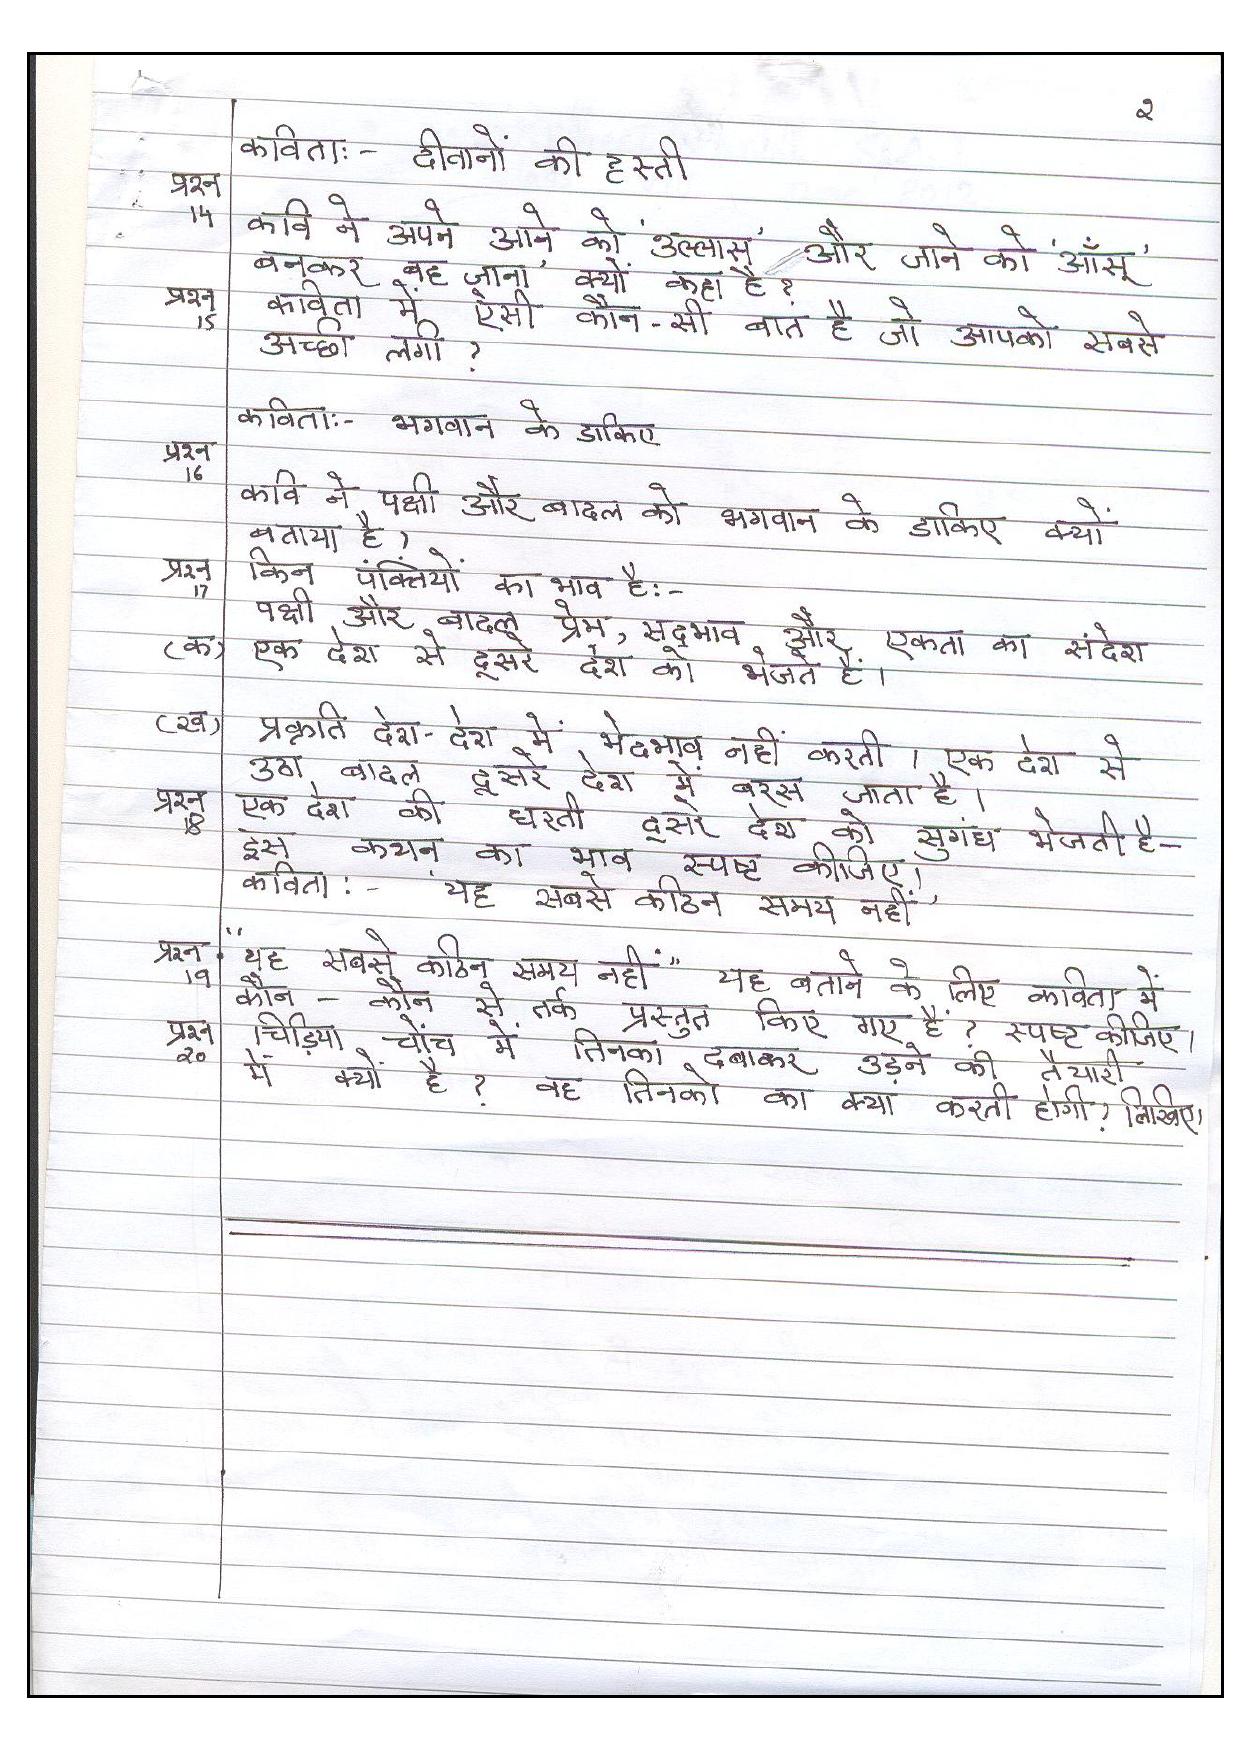 २
कविताः- दीवानों की हस्ती
प्रश्न 14 कवि ने अपने आने को 'उल्लास' और जाने को 'आँसू
बनकर बह जाना' क्यों कहा है?
प्रश्न 15 कविता में ऐसी कौन-सी बात है जो आपको सबसे
अच्छी लगी?
कविताः- भगवान के डाकिए
प्रश्न 16 कवि ने पक्षी और बादल को भगवान के डाकिए क्यों
बताया है?
प्रश्न 17 किन पंक्तियों का भाव है:-
पक्षी और बादल प्रेम, सद्भाव और एकता का संदेश
(क) एक देश से दूसरे देश को भेजते हैं।
(ख) प्रकृति देश-देश में भेदभाव नहीं करती। एक देश से
उठा बादल दूसरे देश में बरस जाता है।
प्रश्न 18 एक देश की धरती दूसरे देश को सुगंध भेजती है-
इस कथन का भाव स्पष्ट कीजिए।
कविता:- 'यह सबसे कठिन समय नहीं'
प्रश्न 19 "यह सबसे कठिन समय नहीं" यह बताने के लिए कविता में
कौन-कौन से तर्क प्रस्तुत किए गए हैं? स्पष्ट कीजिए।
प्रश्न २० चिड़िया चोंच में तिनका दबाकर उड़ने की तैयारी
में क्यों है? वह तिनको का क्या करती होगी? लिखिए।